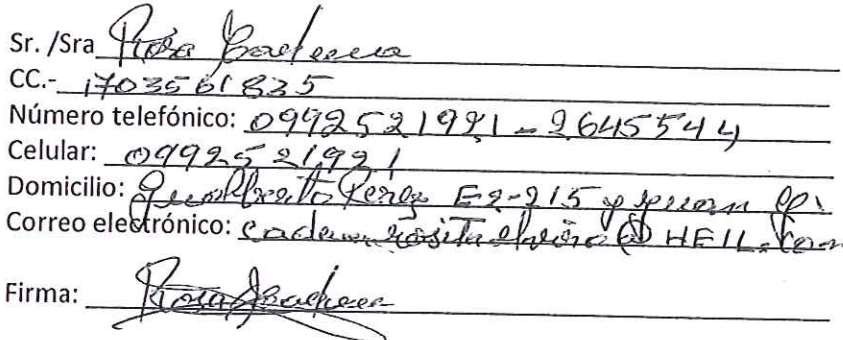 Sr. /Sra Rosa Cadena
CC.- 1703561835
Número telefónico: 0992521991 - 2645544
Celular: 0992521991
Domicilio: Gualberto Pérez E2-215 y
Correo electrónico:
Firma: Rosa Cadena